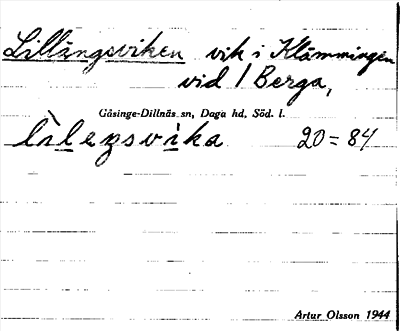 Lillängsviken vik i Klämmingen
vid / Berga,
Gåsinge-Dillnäs sn, Daga hd, Söd. l.
lìlęŋsvi̱ka 20=84
Artur Olsson 1944